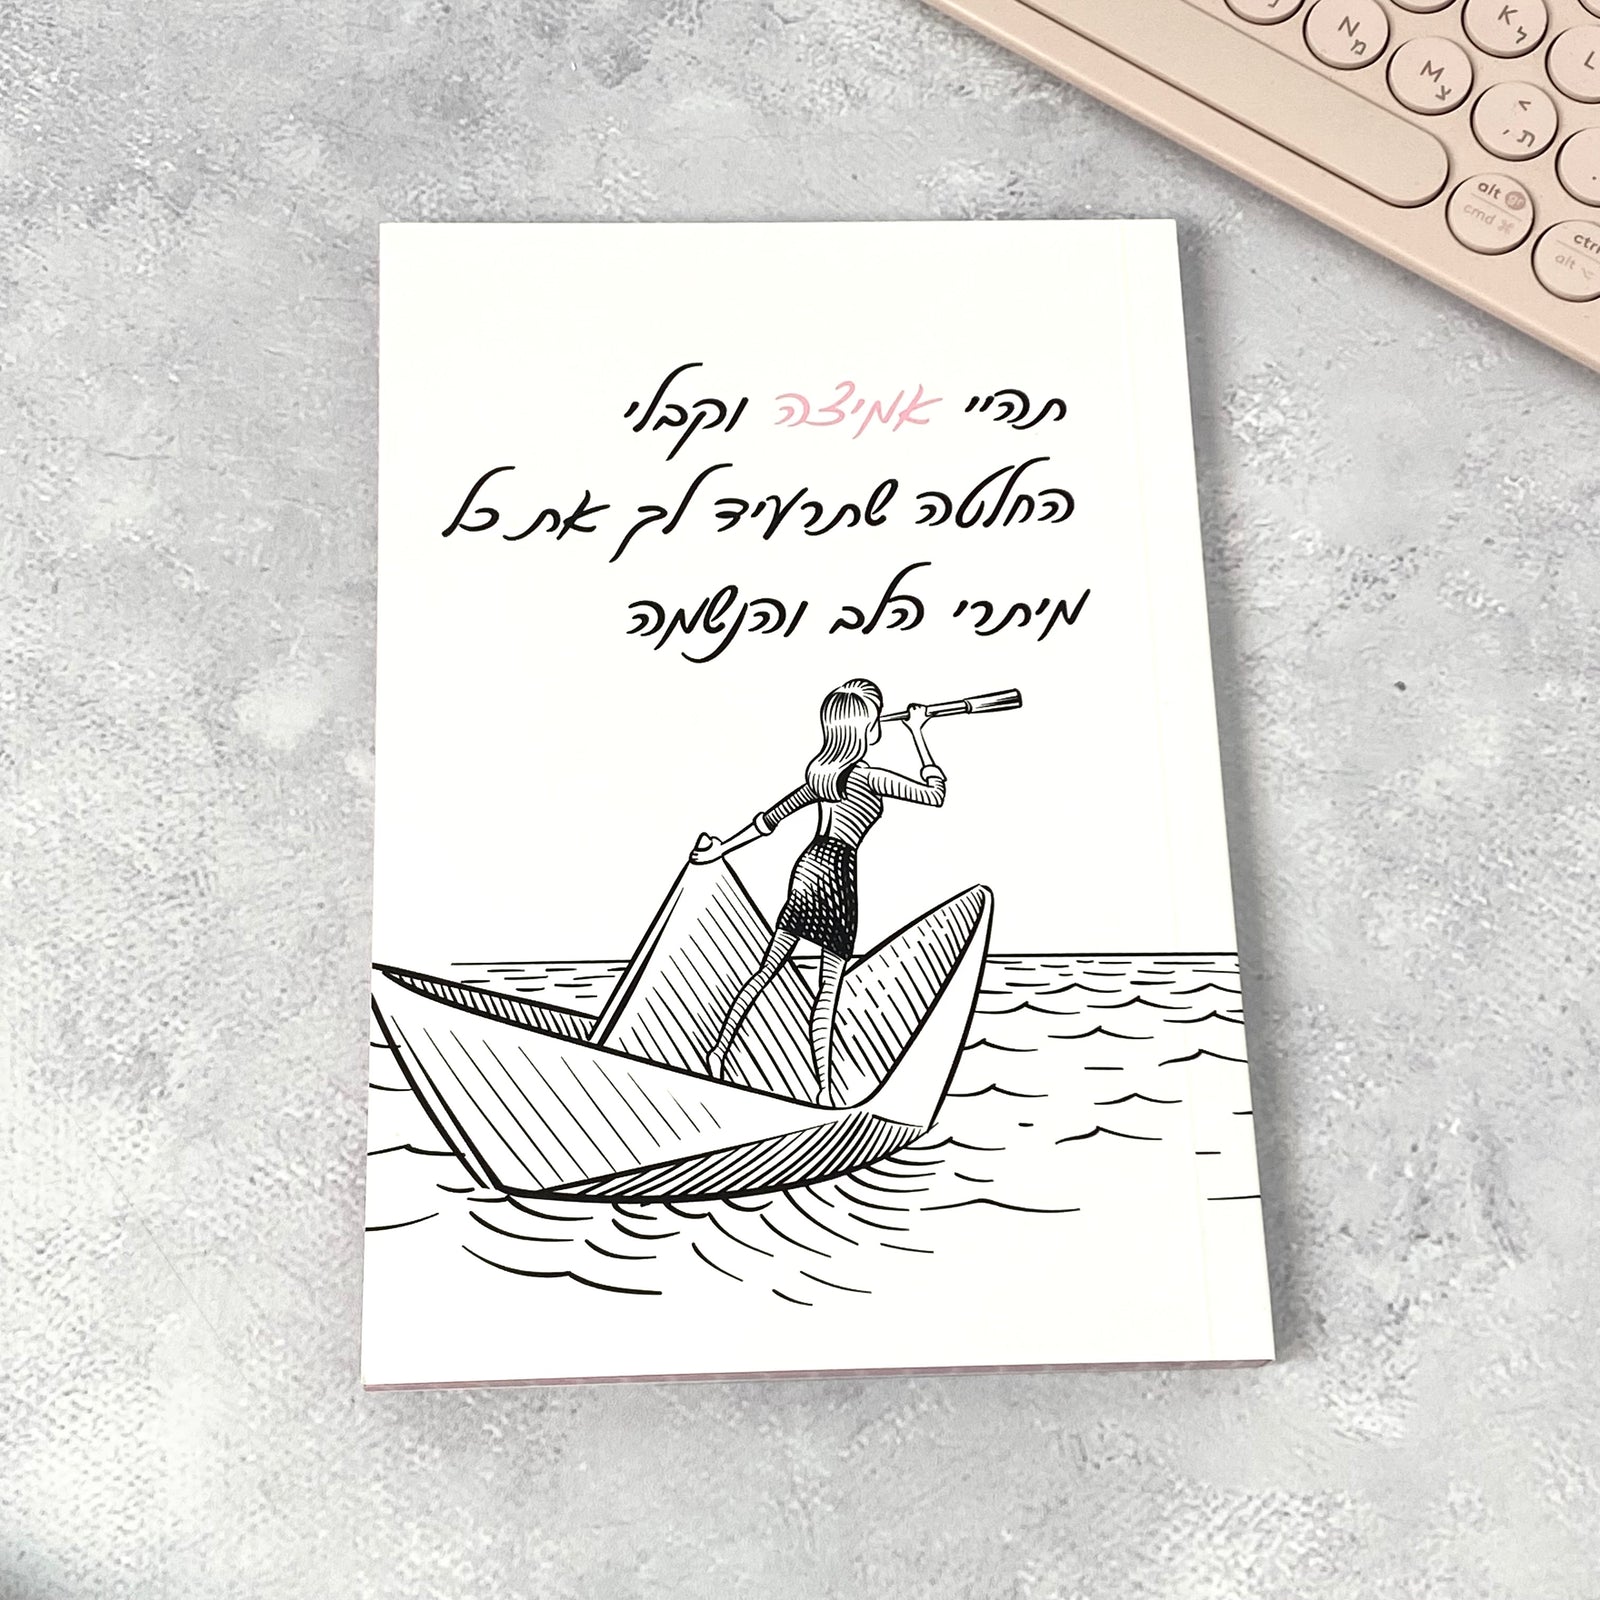 תהיי אמיצה וקבלי
החלטה שתרעיד לך את כל
מיתרי הלב והנשמה
K ל
L
N מ
M צ
< , ת
alt gr
cmd ⌘
ctrl
alt ⌥